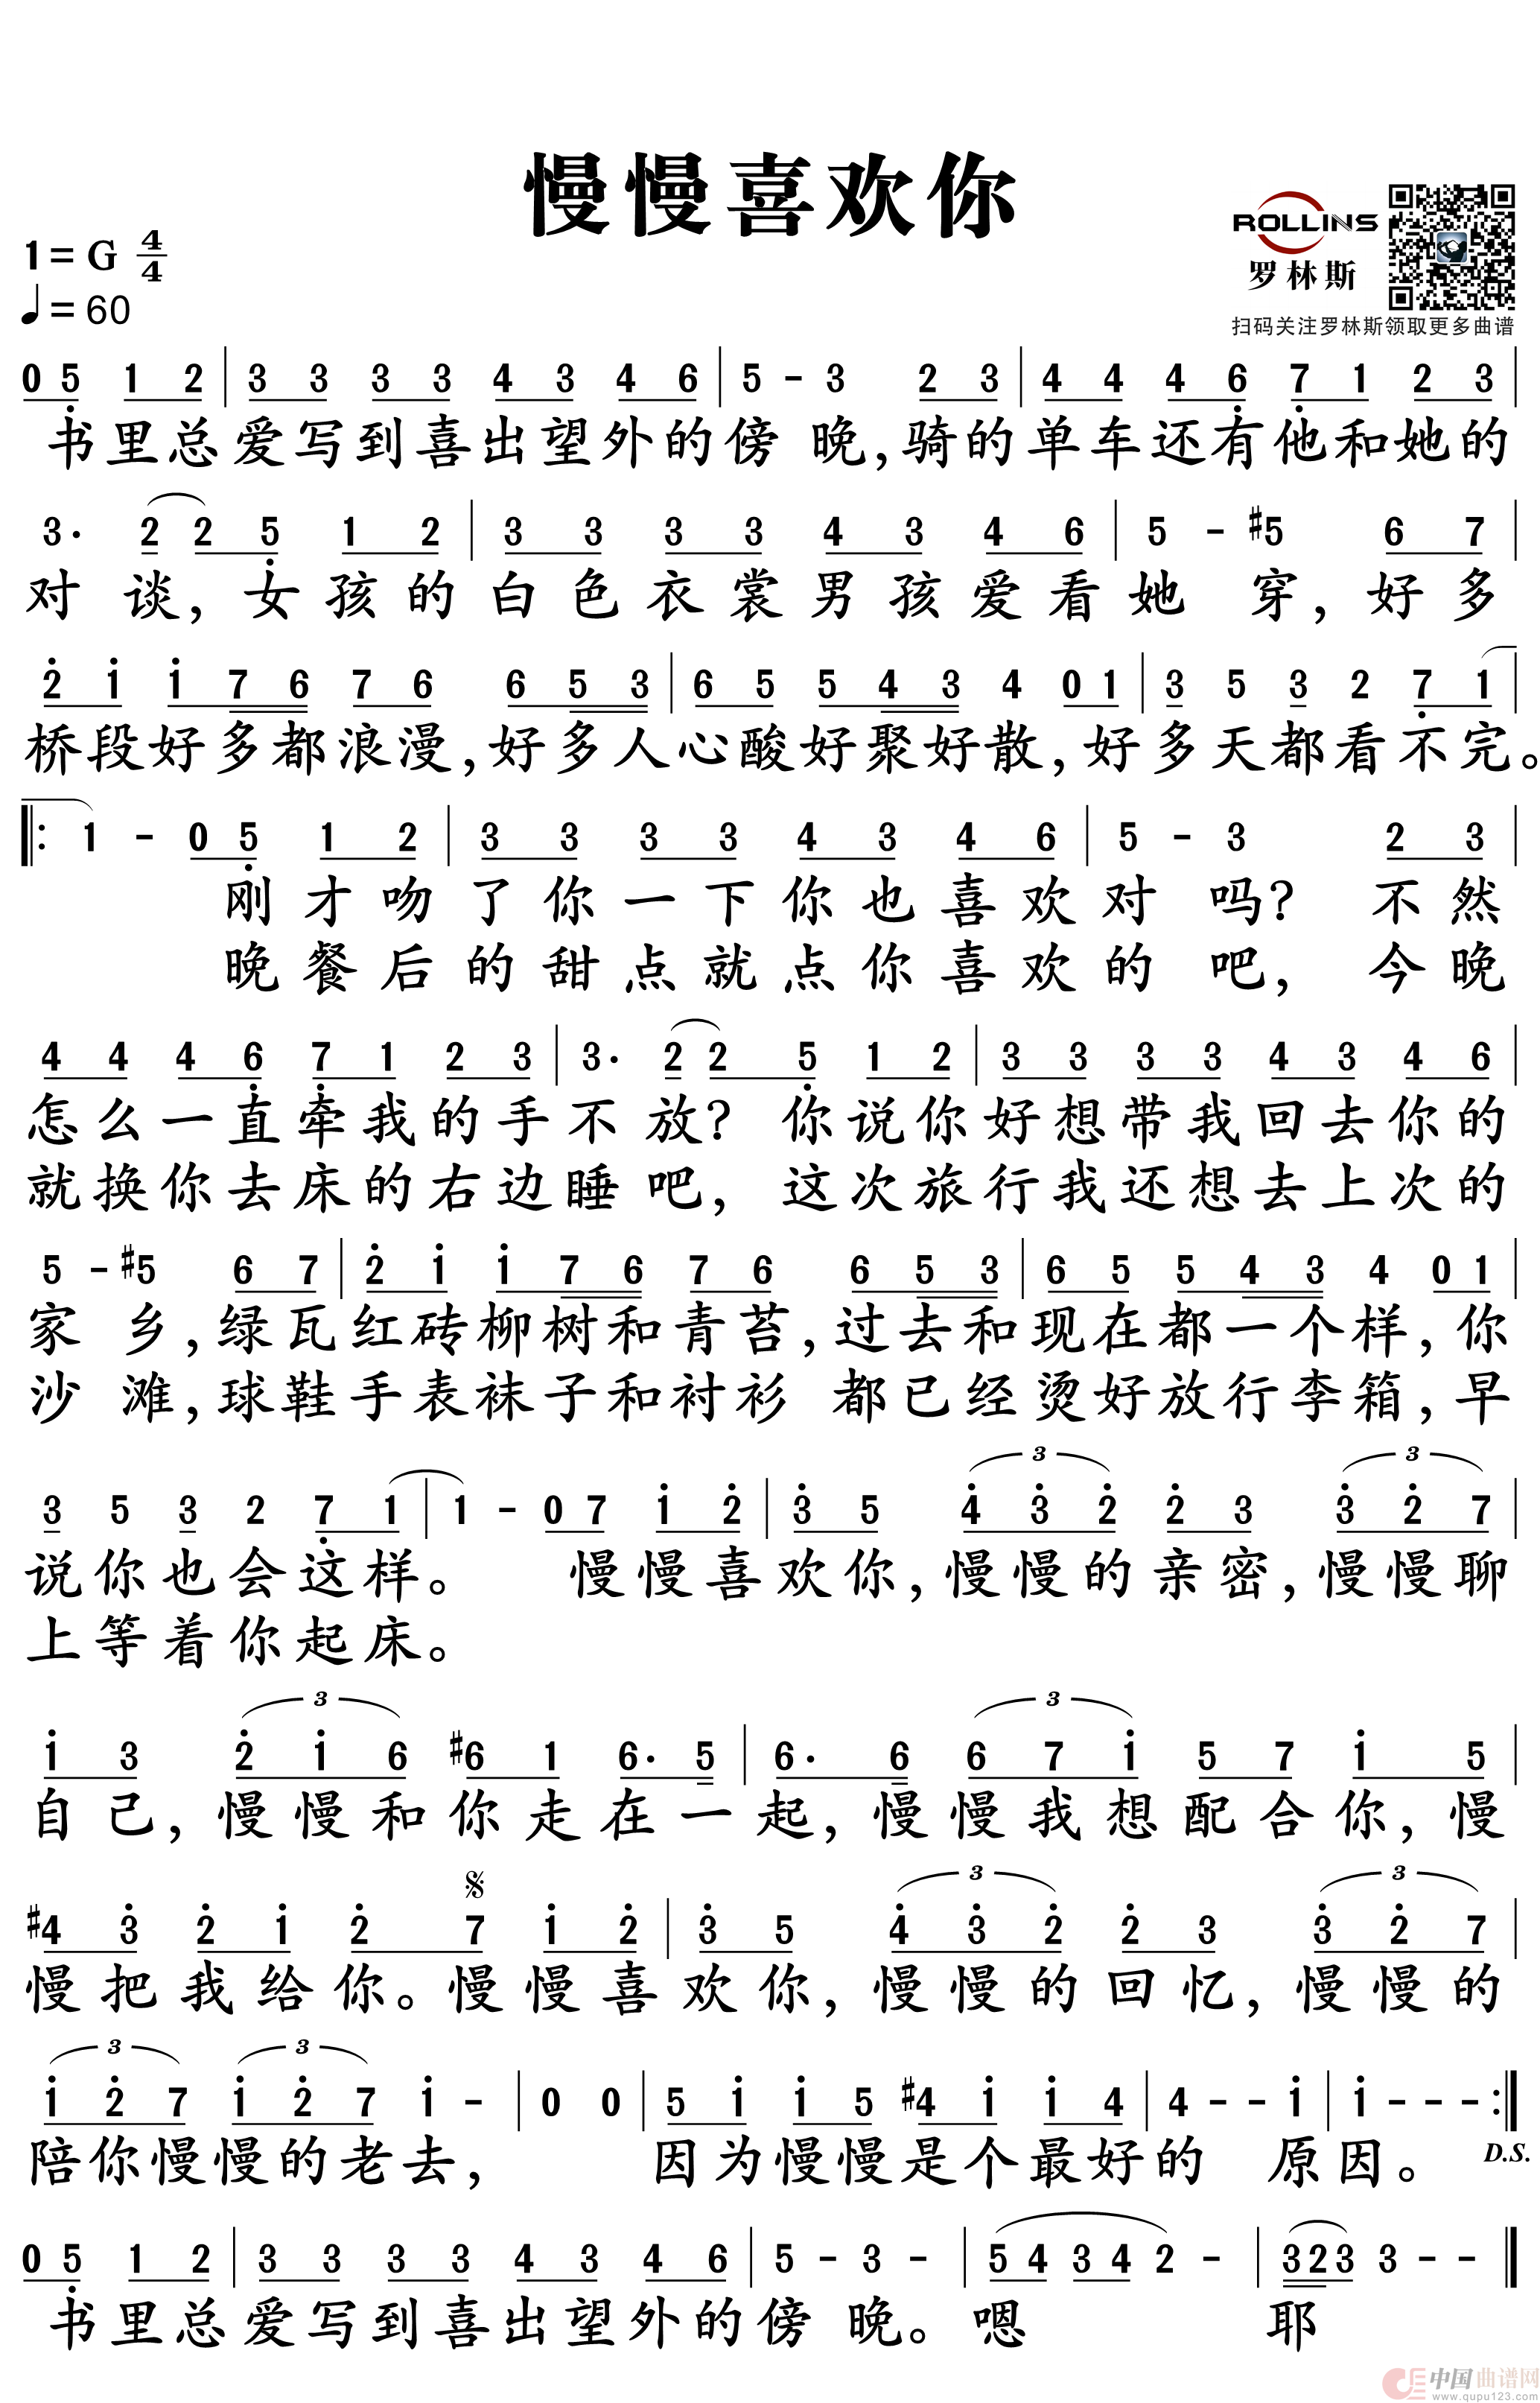 慢慢喜欢你
ROLLINS
罗林斯
扫码关注罗林斯领取更多曲谱
1=G 4/4
♩=60
0 5 1 2 | 3 3 3 3 4 3 4 6 | 5 - 3 2 3 | 4 4 4 6 7 1 2 3 |
书里总爱写到喜出望外的傍 晚,骑的单车还有他和她的
3· 2 2 5 1 2 | 3 3 3 3 4 3 4 6 | 5 - #5 6 7 |
对 谈,女孩的白色衣裳男孩爱看她 穿,好多
2 1 1 7 6 7 6 6 5 3 | 6 5 5 4 3 4 0 1 | 3 5 3 2 7 1 |
桥段好多都浪漫,好多人心酸好聚好散,好多天都看不完。
1 - 0 5 1 2 | 3 3 3 3 4 3 4 6 | 5 - 3 2 3 |
刚才吻了你一下你也喜欢对 吗? 不然
晚餐后的甜点就点你喜欢的 吧, 今晚
4 4 4 6 7 1 2 3 | 3· 2 2 5 1 2 | 3 3 3 3 4 3 4 6
怎么一直牵我的手不放? 你说你好想带我回去你的
就换你去床的右边睡吧, 这次旅行我还想去上次的
5 - #5 6 7 | 2 1 1 7 6 7 6 6 5 3 | 6 5 5 4 3 4 0 1 |
家 乡,绿瓦红砖柳树和青苔,过去和现在都一个样,你
沙 滩,球鞋手表袜子和衬衫 都已经烫好放行李箱,早
3 3
3 5 3 2 7 1 | 1 - 0 7 1 2 | 3 5 4 3 2 2 3 3 2 7 |
说你也会这样。 慢慢喜欢你,慢慢的亲密,慢慢聊
上等着你起床。
3 3
1 3 2 1 6 #6 1 6· 5 | 6· 6 6 7 1 5 7 1 5 |
自己,慢慢和你走在一起,慢慢我想配合你,慢
3 3
#4 3 2 1 2 7 1 2 | 3 5 4 3 2 2 3 3 2 7 |
慢把我给你。慢慢喜欢你,慢慢的回忆,慢慢的
3 3
1 2 7 1 2 7 1 - | 0 0 | 5 1 1 5 #4 1 1 4 | 4 - - 1 | 1 - - - :|
陪你慢慢的老去, 因为慢慢是个最好的 原因。 D.S.
0 5 1 2 | 3 3 3 3 4 3 4 6 | 5 - 3 - | 5 4 3 4 2 - | 3 2 3 3 - - |
书里总爱写到喜出望外的傍 晚。嗯 耶
中国曲谱网
www.qupu123.com